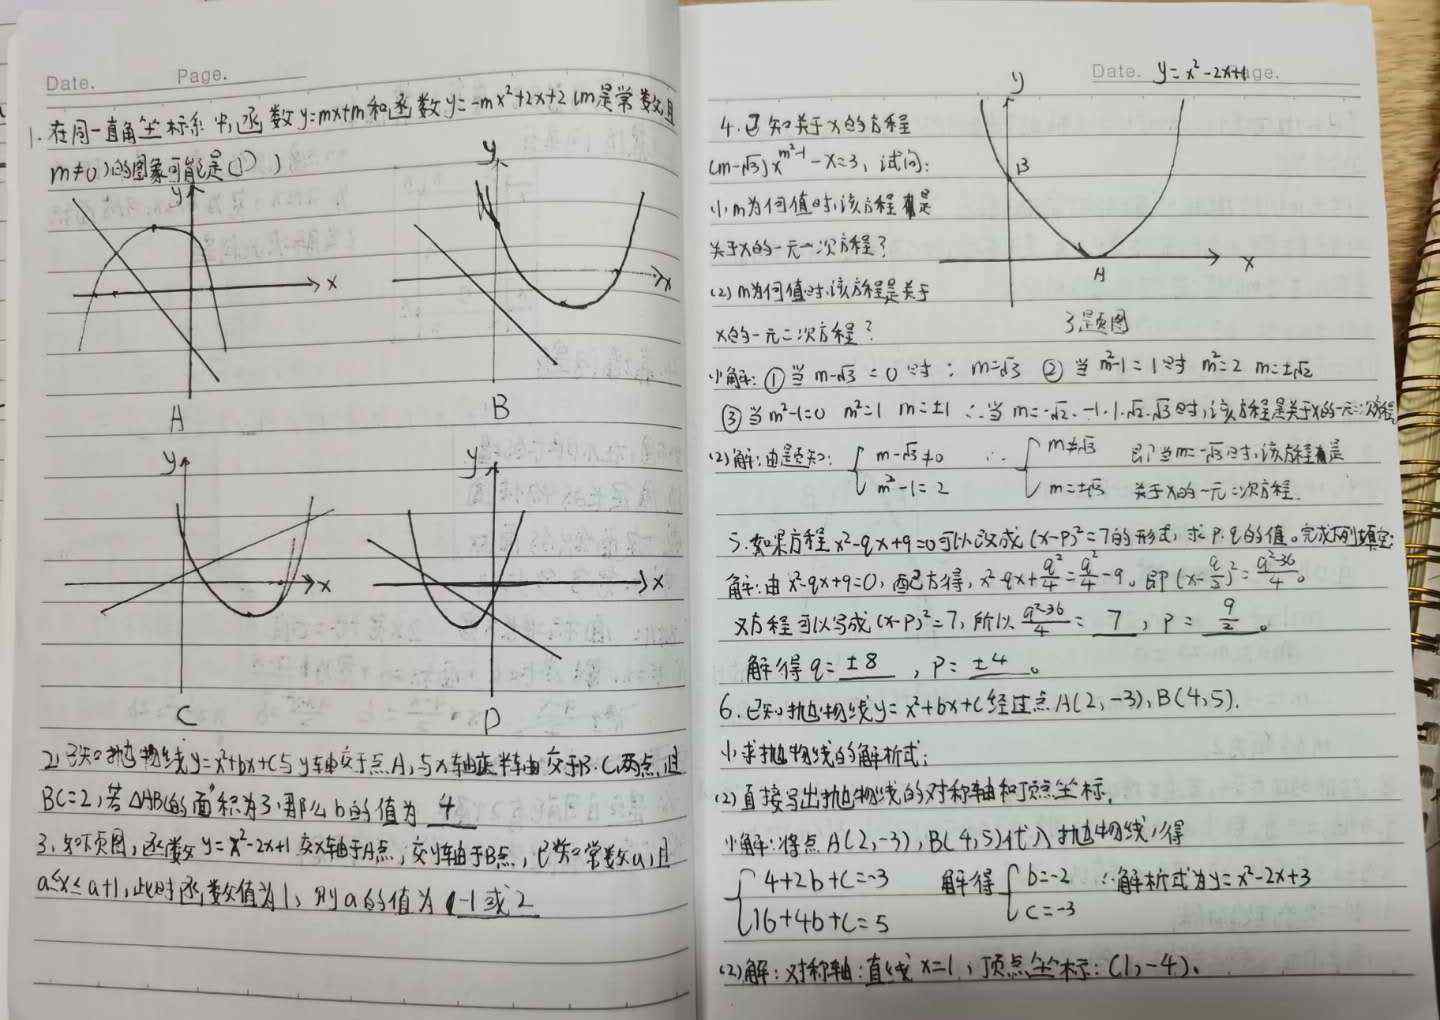 Date.
Page.
1. 在同一直角坐标系中,函数y=mx+m和函数y=-mx²+2x+2(m是常数,且
m≠0)的图象可能是(D)
y
x
A
y
x
B
y
x
C
y
x
D
2. 已知抛物线y=x²+bx+c与y轴交于点A,与x轴正半轴交于B.C两点,且
BC=2,若△ABC的面积为3,那么b的值为 4
3. 如下页图,函数y=x²-2x+1交x轴于A点,交y轴于B点,已知常数a,且
a≤x≤a+1,此时函数值为1,则a的值为 -1或2
Date. y=x²-2x+1
4. 已知关于x的方程
(m-√3)x^{m²-1}-x=3,试问:
(1)m为何值时,该方程是
关于x的一元一次方程?
(2)m为何值时,该方程是关于
x的一元二次方程?
y
B
A
x
3题图
(1)解:①当m-√3=0时: m=√3 ②当m²-1=1时 m²=2 m=±√2
③当m²-1=0 m²=1 m=±1 ∴当m=-√2.-1.1.√2.√3时,该方程是关于x的一元一次方程
(2)解:由题知: { m-√3≠0 ∴ { m≠√3 即当m=-√3时,该方程是
m²-1=2 m=±√3 关于x的一元二次方程.
5. 如果方程x²-qx+9=0可以改成(x-P)²=7的形式,求P.q的值。完成下列填空:
解:由x²-qx+9=0,配方得,x²-qx+q²/4=q²/4-9。即(x-q/2)²=q²-36/4。
又方程可以写成(x-P)²=7,所以q²-36/4=7,P=q/2。
解得q=±8,P=±4。
6. 已知抛物线y=x²+bx+c经过点A(2,-3),B(4,5).
(1)求抛物线的解析式;
(2)直接写出抛物线的对称轴和顶点坐标.
(1)解:将点A(2,-3),B(4,5)代入抛物线,得
{ 4+2b+c=-3 解得 { b=-2 ∴解析式为y=x²-2x+3
16+4b+c=5 c=-3
(2)解:对称轴:直线x=1,顶点坐标:(1,-4).